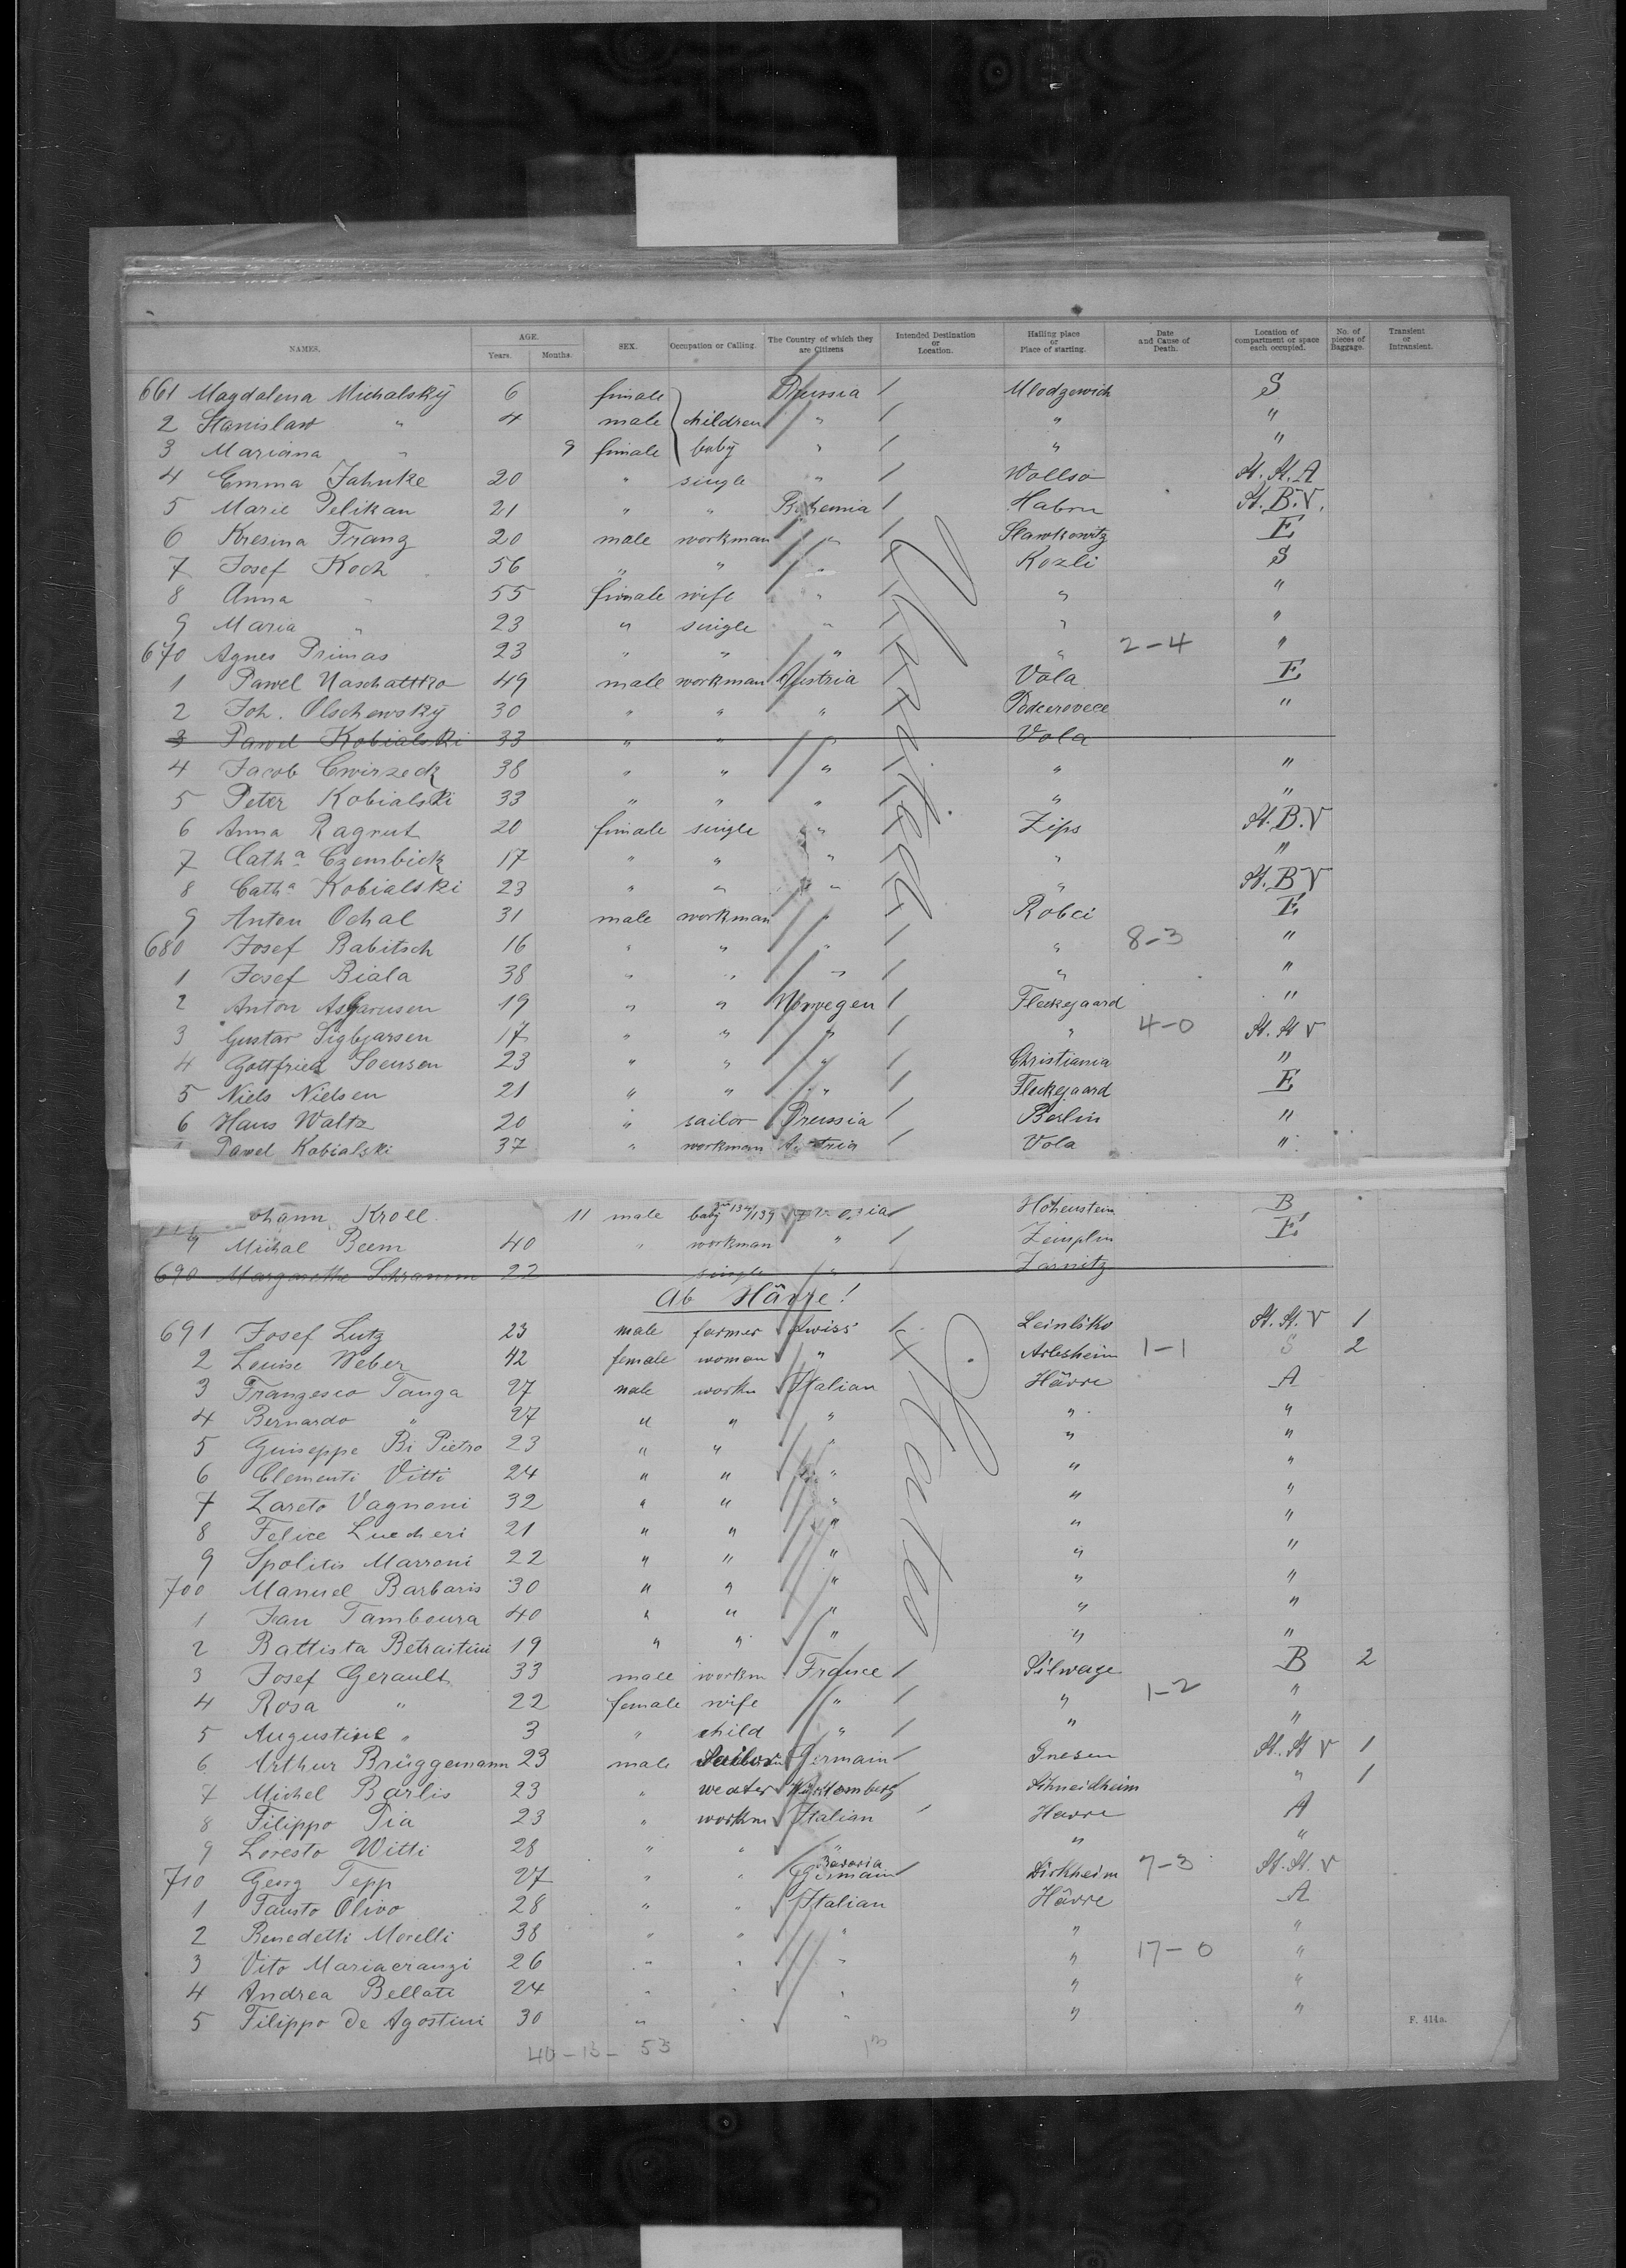 NAMES. AGE. Years. Months. SEX. Occupation or Calling. The Country of which they are Citizens Intended Destination or Location. Hailing place or Place of starting. Date and Cause of Death. Location of compartment or space each occupied. No. of pieces of Baggage. Transient or Intransient.
661 Magdalena Michalsky 6 female Prussia / Mlodzowich S
2 Stanislaw " 4 male children " / " "
3 Mariana " 9 female baby " / " "
4 Emma Jahnke 20 " single " / Wollso St. St. A
5 Marie Pelikan 21 " " Bohemia / Habrn St. B. V.
6 Kresina Franz 20 male workman " / Slawkowitz E
7 Josef Koch 56 " " " / Kozli S
8 Anna " 55 female wife " / " "
9 Maria " 23 " single " / " "
670 Agnes Primas 23 " " " / " 2-4 "
1 Pawel Naschattko 49 male workman Austria / Vola E
2 Joh. Olschewsky 30 " " " / "
3 Pawel Kobialski 33 " " " Vola
4 Jacob Cwirzeck 38 " " " / " "
5 Peter Kobialski 33 " " " / " "
6 Anna Ragrut 20 female single " / Zips St. B. V
7 Catha Czembick 17 " " " / " "
8 Catha Kobialski 23 " " " / " St. B V
9 Anton Ochal 31 male workman " / Robci E
680 Josef Babitsch 16 " " " / " 8-3 "
1 Josef Biala 38 " " " / " "
2 Anton 19 " " Norwegen / Fleckejaard "
3 Gustav Sigbjarsen 17 " " " / " 4-0 St. St V
4 Gottfried Soensen 23 " " " / Christiania "
5 Niels Nielsen 21 " " " / Fleckejaard E
6 Hans Waltz 20 " sailor Prussia / Berlin "
Pawel Kobialski 37 " workman Austria / Vola "
ohann Kroll 11 male baby / Hohenstein B
9 Michal Beem 40 " workman " / Zemplin E
690 Margarethe Schramm 22 single " Zarnitz
Ab Hävre!
691 Josef Lutz 23 male farmer Swiss / St. St. V 1
2 Louise Weber 42 female woman " / Arlesheim 1-1 S 2
3 Franzesco Tanga 27 male workn Italian Hävre A
4 Bernardo " 27 " " " " "
5 Guiseppe Bi Pietro 23 " " " " "
6 Clementi Vitti 24 " " " " "
7 Lareto Vagnoni 32 " " " " "
8 Felice Luecheri 21 " " " " "
9 Spolitis Marroni 22 " " " " "
700 Manuel Barbaris 30 " " " " "
1 Jan Tamboura 40 " " " " "
2 Battista Betraitini 19 " " " " "
3 Josef Gerault 33 male workm France / Silwage B 2
4 Rosa " 22 female wife " / " 1-2 "
5 Augustine " 3 " child " / " "
6 Arthur Brüggemann 23 male Sailor Germain / Gnesen St. St V 1
7 Michel Barlis 23 " Schneidheim " 1
8 Filippo Pia 23 " workm Italian / Havre A
9 Loresto Witti 28 " " " " "
710 Georg Tepp 27 " " Bavaria Germain / Dirkheim 7-3 St. St. V
1 Fausto Olivo 28 " " Italian Hävre A
2 Benedetti Morelli 38 " " " " "
3 Vito Mariacrangi 26 " " " " 17-0 "
4 Andrea Bellati 24 " " " " "
5 Filippo de Agostini 30 " " " " "
F. 414a.
40-13-53 13